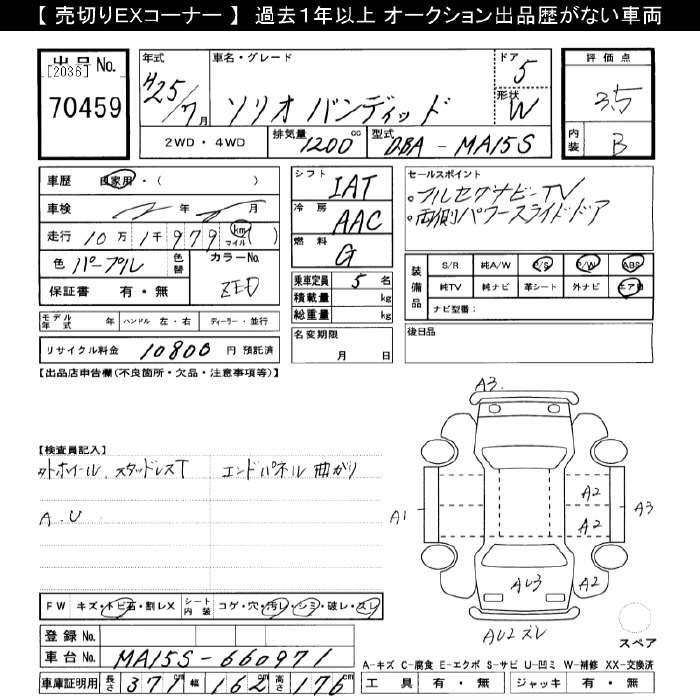 【 売切りEXコーナー 】 過去1年以上 オークション出品歴がない車両
出品 No.
[2036]
70459
年式
H25/7月
車名・グレード
ソリオ バンディッド
ドア
5
形状
W
2WD・4WD
排気量
1200 cc
型式
DBA - MA15S
評価点
3.5
内装
B
車歴
自家用・( )
車検
年 月
走行
10万 1千979 km マイル ( )
色
パープル
色替
カラーNo.
ZED
保証書 有・無
モデル年式 年
ハンドル 左・右
ディーラー・並行
リサイクル料金 10800 円 預託済
シフト
IAT
冷房
AAC
燃料
G
乗車定員 5 名
積載量 kg
総重量 kg
名変期限
月 日
セールスポイント
・フルセグナビ-TV
・両側パワースライドドア
装備品
S/R 純A/W P/S P/W ABS
純TV 純ナビ 革シート 外ナビ エアB
ナビ型番：
後日品
【出品店申告欄(不良箇所・欠品・注意事項等)】
【検査員記入】
外ホイール、スタッドレスT
エンドパネル 曲がり
A.U
A3
A1
A2
A2
A3
AU3
A2
AU2 ズレ
スペア
FW キズ・トビ石・割レX
シート内装 コゲ・穴・汚レ・シミ・破レ・スレ
登録 No.
車台 No. MA15S-660971
車庫証明用 長さ 371cm 幅 162cm 高さ 176cm
A-キズ C-腐食 E-エクボ S-サビ U-凹ミ W-補修 XX-交換済
工具 有・無 ジャッキ 有・無